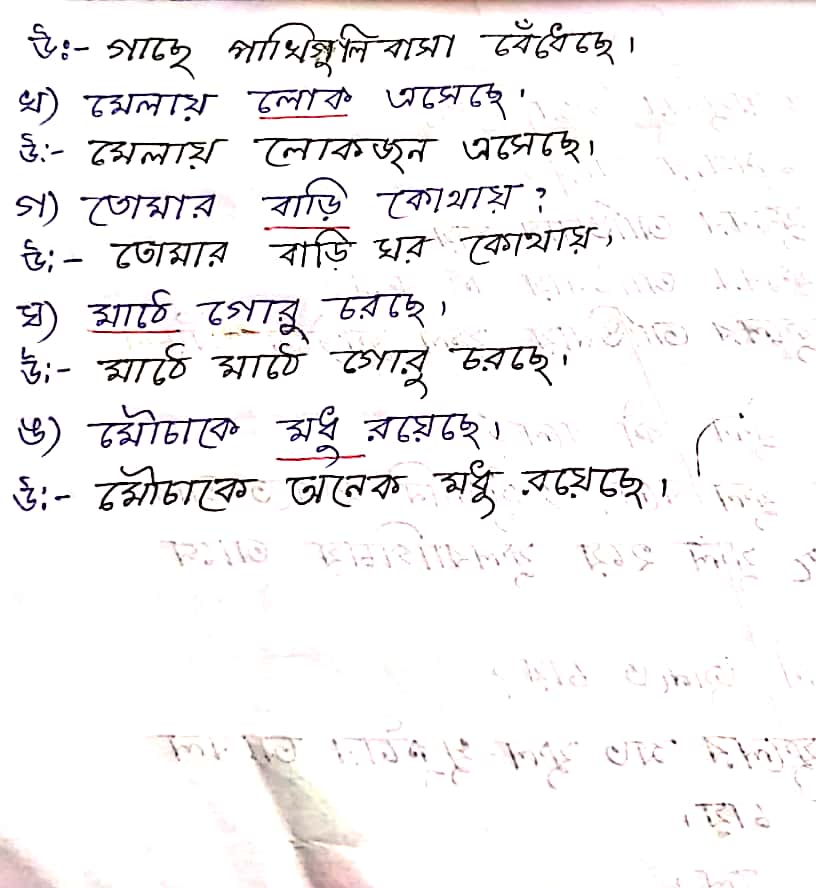 উঃ- গাছে পাখিগুলি বাসা বেঁধেছে।
খ) মেলায় লোক এসেছে।
উঃ- মেলায় লোকজন এসেছে।
গ) তোমার বাড়ি কোথায় ?
উঃ- তোমার বাড়ি ঘর কোথায়,
ঘ) মাঠে গোরু চরছে।
উঃ- মাঠে মাঠে গোরু চরছে।
ঙ) মৌচাকে মধু রয়েছে।
উঃ- মৌচাকে অনেক মধু রয়েছে।